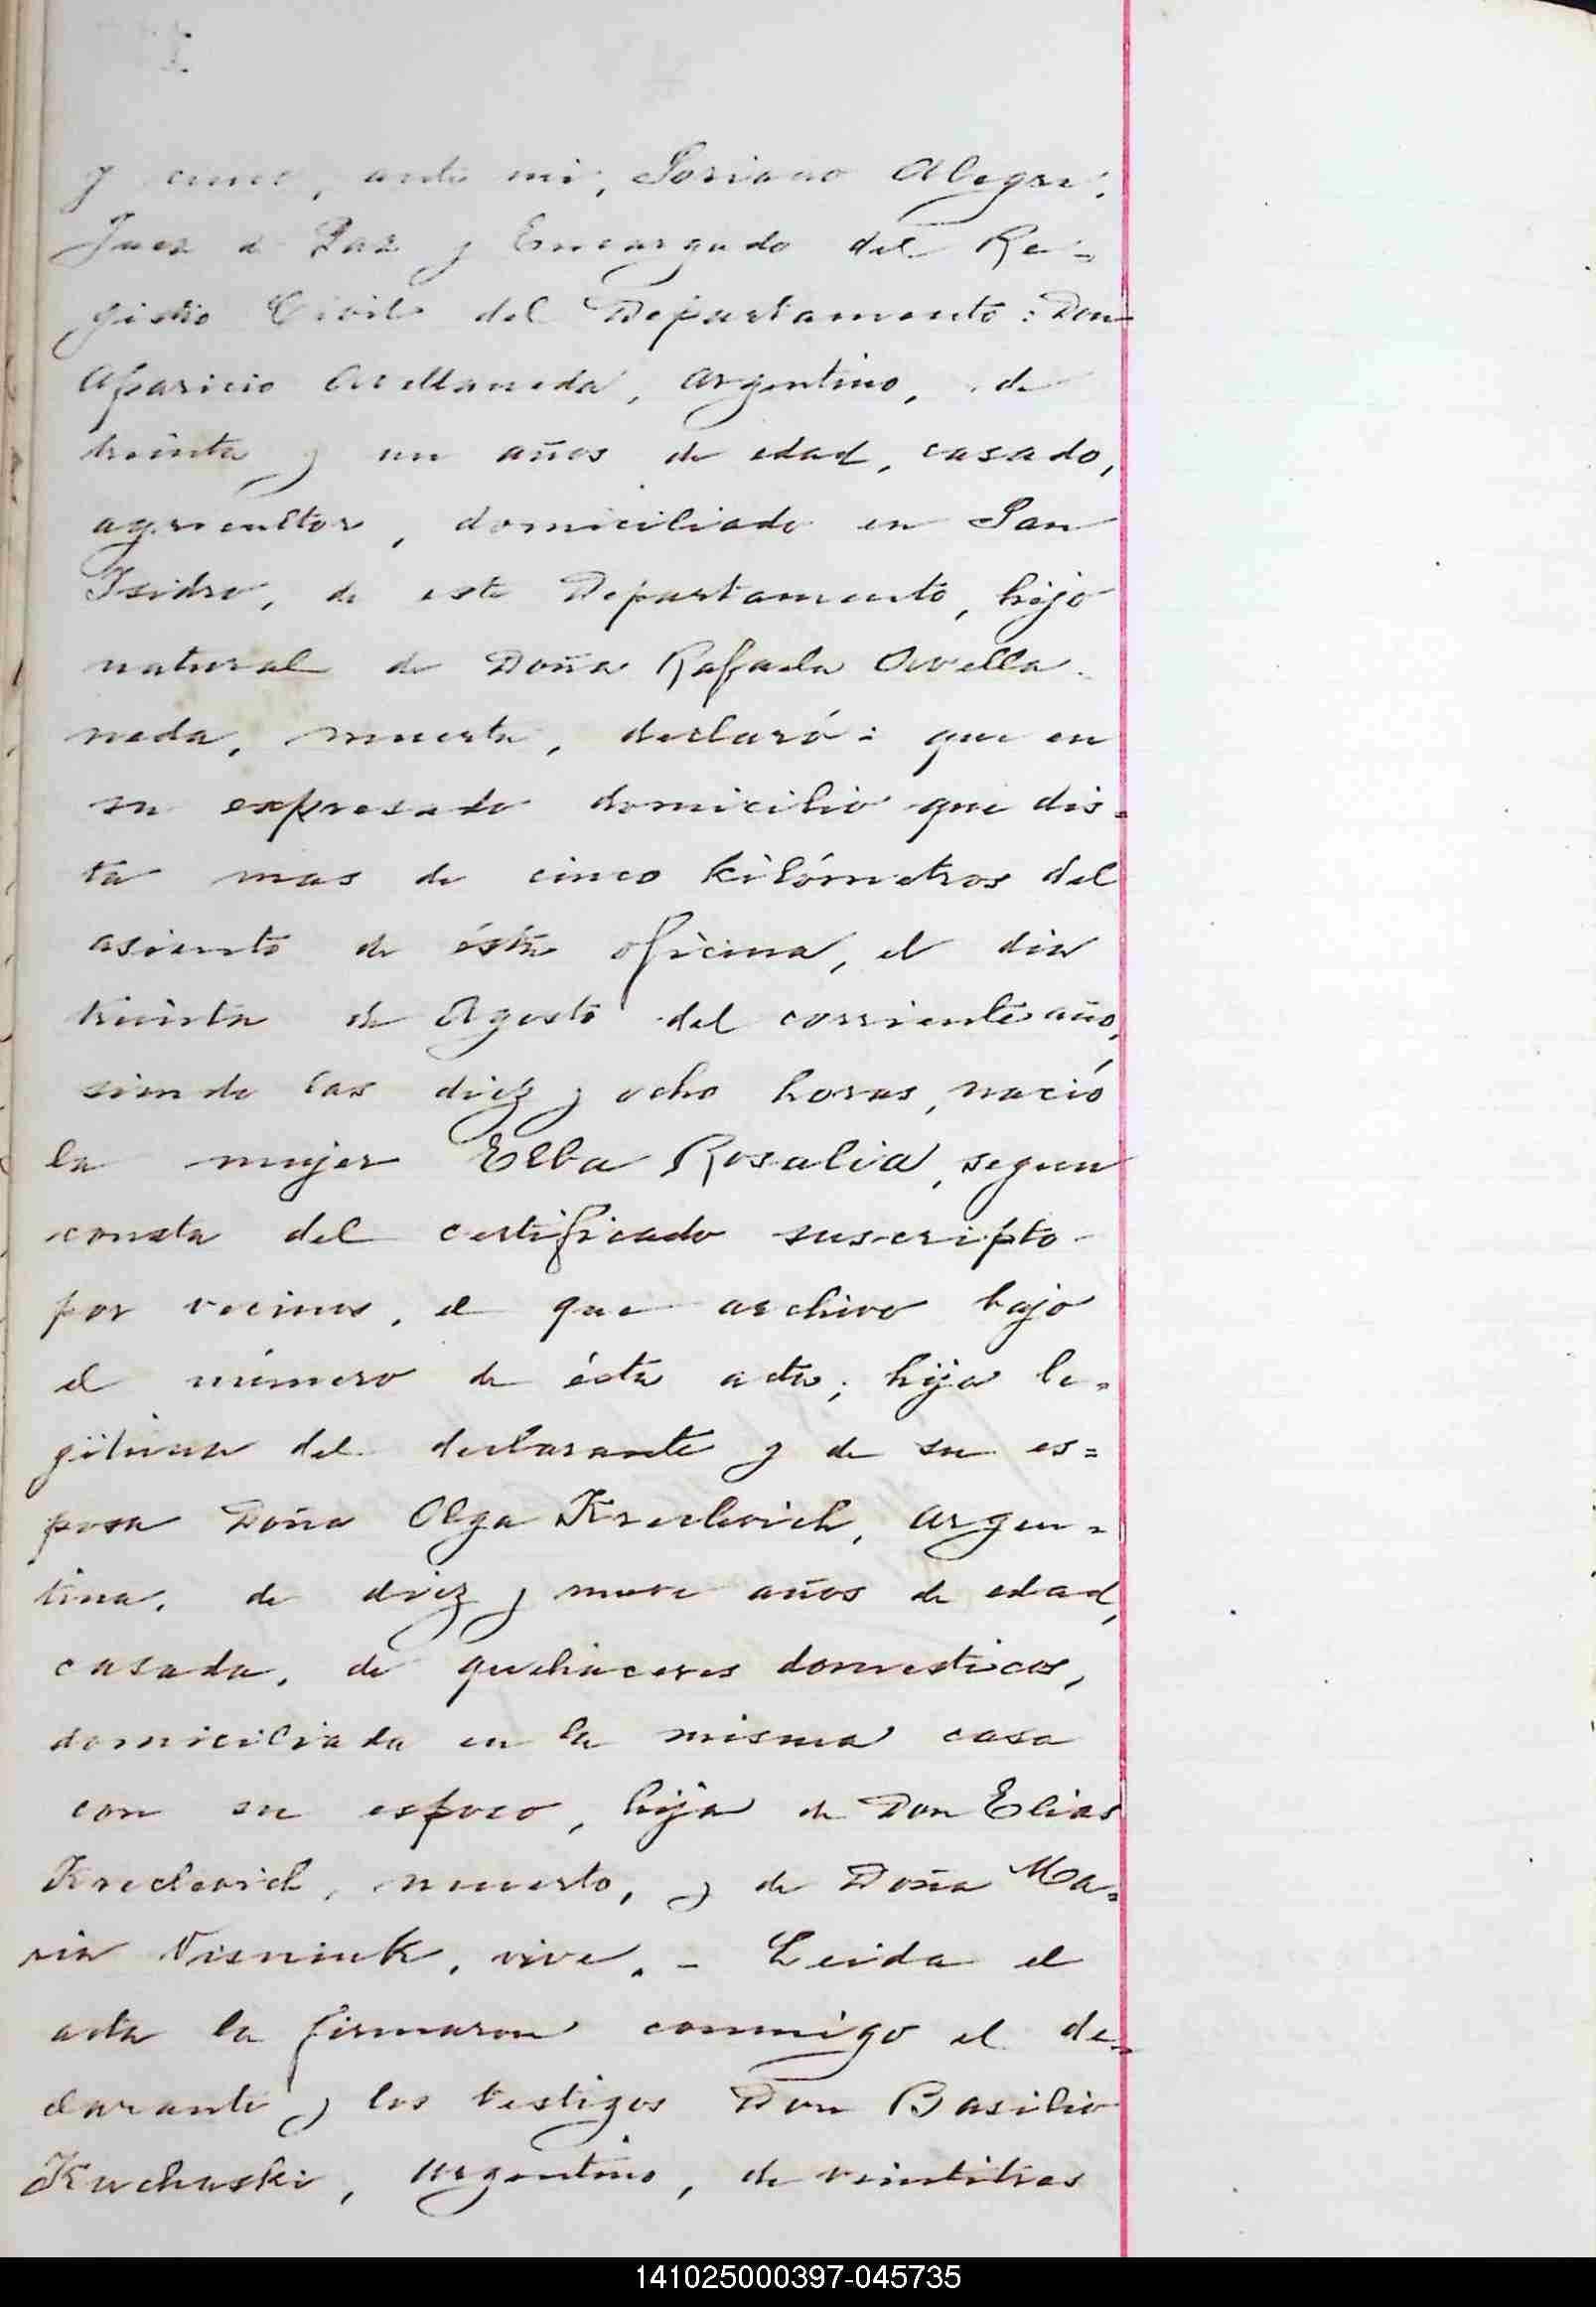 y cinco, ante mi, Soriano Alegre,
Juez de Paz y Encargado del Re-
gistro Civil del Departamento: Don
Aparicio Avellaneda, argentino, de
treinta y un años de edad, casado,
agricultor, domiciliado en San
Isidro, de este Departamento, hijo
natural de Doña Rafaela Avella-
neda, muerta, declaró: que en
su expresado domicilio que dis-
ta mas de cinco kilómetros del
asiento de ésta oficina, el dia
treinta de Agosto del corriente año,
siendo las diez y ocho horas, nació
la mujer Elba Rosalia, segun
consta del certificado suscripto
por vecinos, el que archivo bajo
el número de ésta acta; hija le-
gitima del declarante y de su es-
posa Doña Olga Kreclevich, argen-
tina, de diez y nueve años de edad,
casada, de quehaceres domesticos,
domiciliada en la misma casa
con su esposo, hija de Don Elias
Kreclevich, muerto, y de Doña Ma-
ria Visniuk, vive. - Leida el
acta la firmaron conmigo el de-
clarante y los testigos Don Basilio
Kuchaski, argentino, de veintitres
141025000397-045735